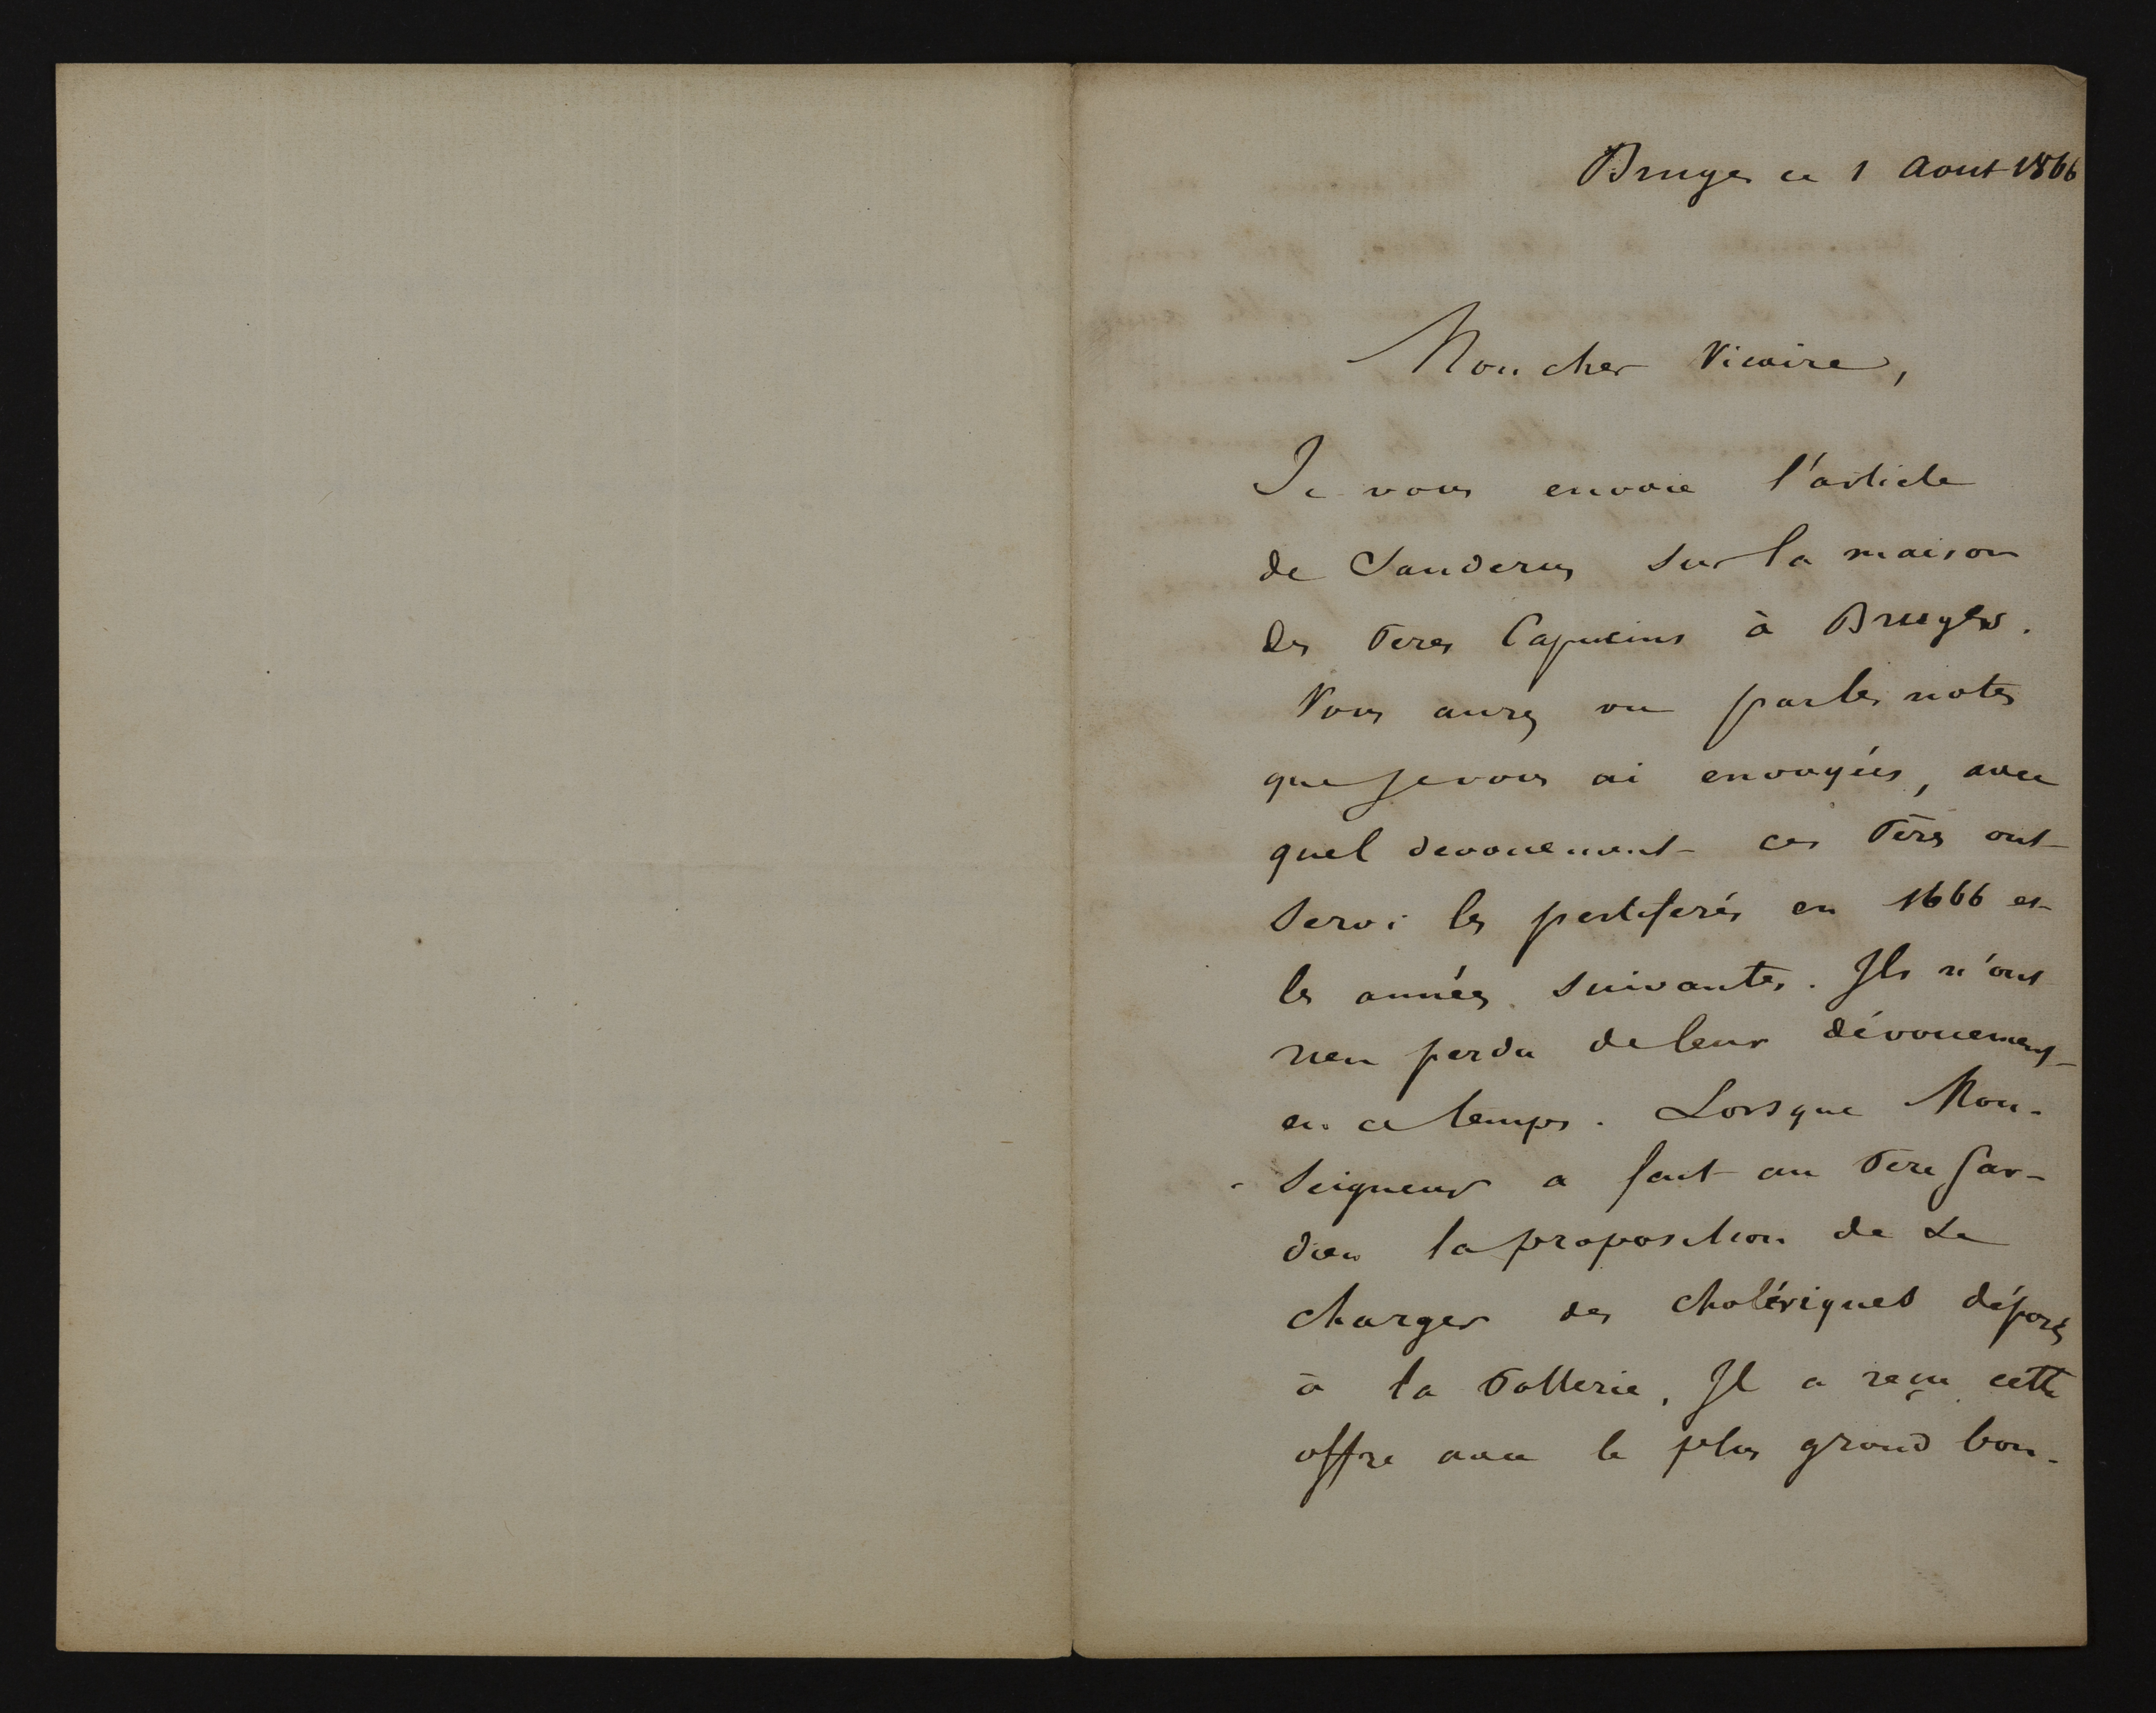 Bruges ce 1 Aout 1866
Mon cher Vicaire,
Je vous envoie l'article
de Sanderus sur la maison
des Peres Capucins à Bruges.
Vous aurez vu par les notes
que je vous ai envoyées, avec
quel devouement ces Pères ont
servi les pestiferés en 1666 et
les années suivantes. Ils n'ont
rien perdu de leur dévouement
en ce temps. Lorsque Mon-
seigneur a fait au Pere Gar-
dien la proposition de se
charger des cholériques déposés
à la Potterie, Il a reçu cette
offre avec le plus grand bon-